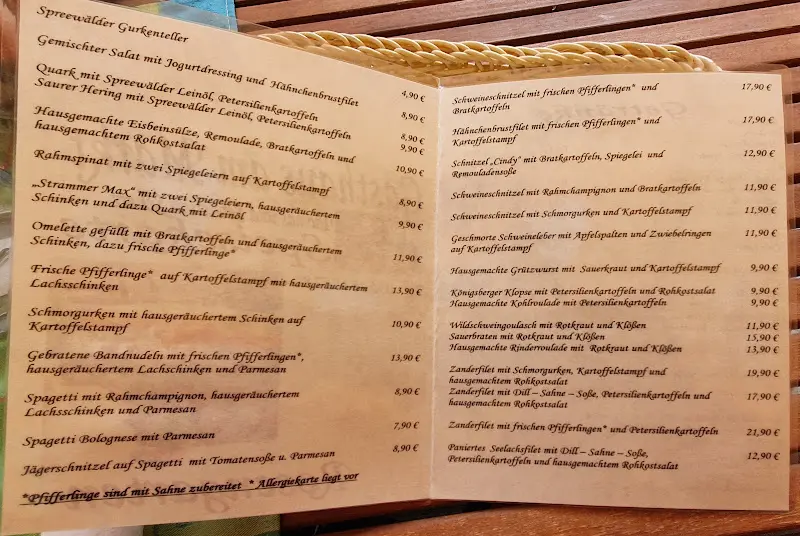 Spreewälder Gurkenteller 4,90 €
Gemischter Salat mit Jogurtdressing und Hähnchenbrustfilet 8,90 €
Quark mit Spreewälder Leinöl, Petersilienkartoffeln 8,90 €
Saurer Hering mit Spreewälder Leinöl, Petersilienkartoffeln 9,90 €
Hausgemachte Eisbeinsülze, Remoulade, Bratkartoffeln und
hausgemachtem Rohkostsalat 10,90 €
Rahmspinat mit zwei Spiegeleiern auf Kartoffelstampf 8,90 €
„Strammer Max“ mit zwei Spiegeleiern, hausgeräuchertem
Schinken und dazu Quark mit Leinöl 9,90 €
Omelette gefüllt mit Bratkartoffeln und hausgeräuchertem
Schinken, dazu frische Pfifferlinge* 11,90 €
Frische Pfifferlinge* auf Kartoffelstampf mit hausgeräuchertem
Lachsschinken 13,90 €
Schmorgurken mit hausgeräuchertem Schinken auf
Kartoffelstampf 10,90 €
Gebratene Bandnudeln mit frischen Pfifferlingen*,
hausgeräuchertem Lachschinken und Parmesan 13,90 €
Spagetti mit Rahmchampignon, hausgeräuchertem
Lachsschinken und Parmesan 8,90 €
Spagetti Bolognese mit Parmesan 7,90 €
Jägerschnitzel auf Spagetti mit Tomatensoße u. Parmesan 8,90 €
*Pfifferlinge sind mit Sahne zubereitet * Allergiekarte liegt vor
Schweineschnitzel mit frischen Pfifferlingen* und 17,90 €
Bratkartoffeln
Hähnchenbrustfilet mit frischen Pfifferlingen* und 17,90 €
Kartoffelstampf
Schnitzel „Cindy“ mit Bratkartoffeln, Spiegelei und 12,90 €
Remouladensoße
Schweineschnitzel mit Rahmchampignon und Bratkartoffeln 11,90 €
Schweineschnitzel mit Schmorgurken und Kartoffelstampf 11,90 €
Geschmorte Schweineleber mit Apfelspalten und Zwiebelringen 11,90 €
auf Kartoffelstampf
Hausgemachte Grützwurst mit Sauerkraut und Kartoffelstampf 9,90 €
Königsberger Klopse mit Petersilienkartoffeln und Rohkostsalat 9,90 €
Hausgemachte Kohlroulade mit Petersilienkartoffeln 9,90 €
Wildschweingoulasch mit Rotkraut und Klößen 11,90 €
Sauerbraten mit Rotkraut und Klößen 15,90 €
Hausgemachte Rinderroulade mit Rotkraut und Klößen 13,90 €
Zanderfilet mit Schmorgurken, Kartoffelstampf und 19,90 €
hausgemachtem Rohkostsalat
Zanderfilet mit Dill – Sahne – Soße, Petersilienkartoffeln und 17,90 €
hausgemachtem Rohkostsalat
Zanderfilet mit frischen Pfifferlingen* und Petersilienkartoffeln 21,90 €
Paniertes Seelachsfilet mit Dill – Sahne – Soße, 12,90 €
Petersilienkartoffeln und hausgemachtem Rohkostsalat